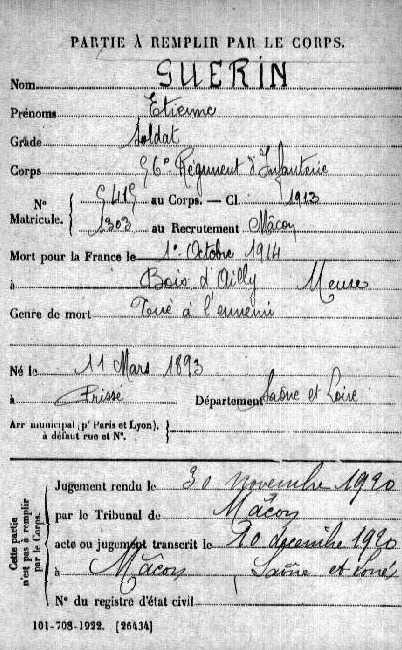 PARTIE À REMPLIR PAR LE CORPS.
Nom GUERIN
Prénoms Etienne
Grade Soldat
Corps 56e Régiment d'Infanterie
N° 5415 au Corps. — Cl. 1913
Matricule. 1303 au Recrutement Mâcon
Mort pour la France le 1er Octobre 1914
à Bois d'Ailly Meuse
Genre de mort Tué à l'ennemi
Né le 11 Mars 1893
à Prissé Département Saône et Loire
Arr municipal (pr Paris et Lyon),
à défaut rue et N°.
Cette partie
n'est pas à remplir
par le Corps.
Jugement rendu le 30 novembre 1920
par le Tribunal de Mâcon
acte ou jugement transcrit le 20 décembre 1920
à Mâcon Saône et Loire
N° du registre d'état civil
101-708-1922. [26434]